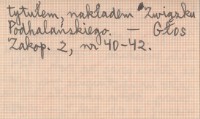 tytułem, nakładem Związku
Podhalańskiego. — Głos
Zakop. 2, nr 40-42.